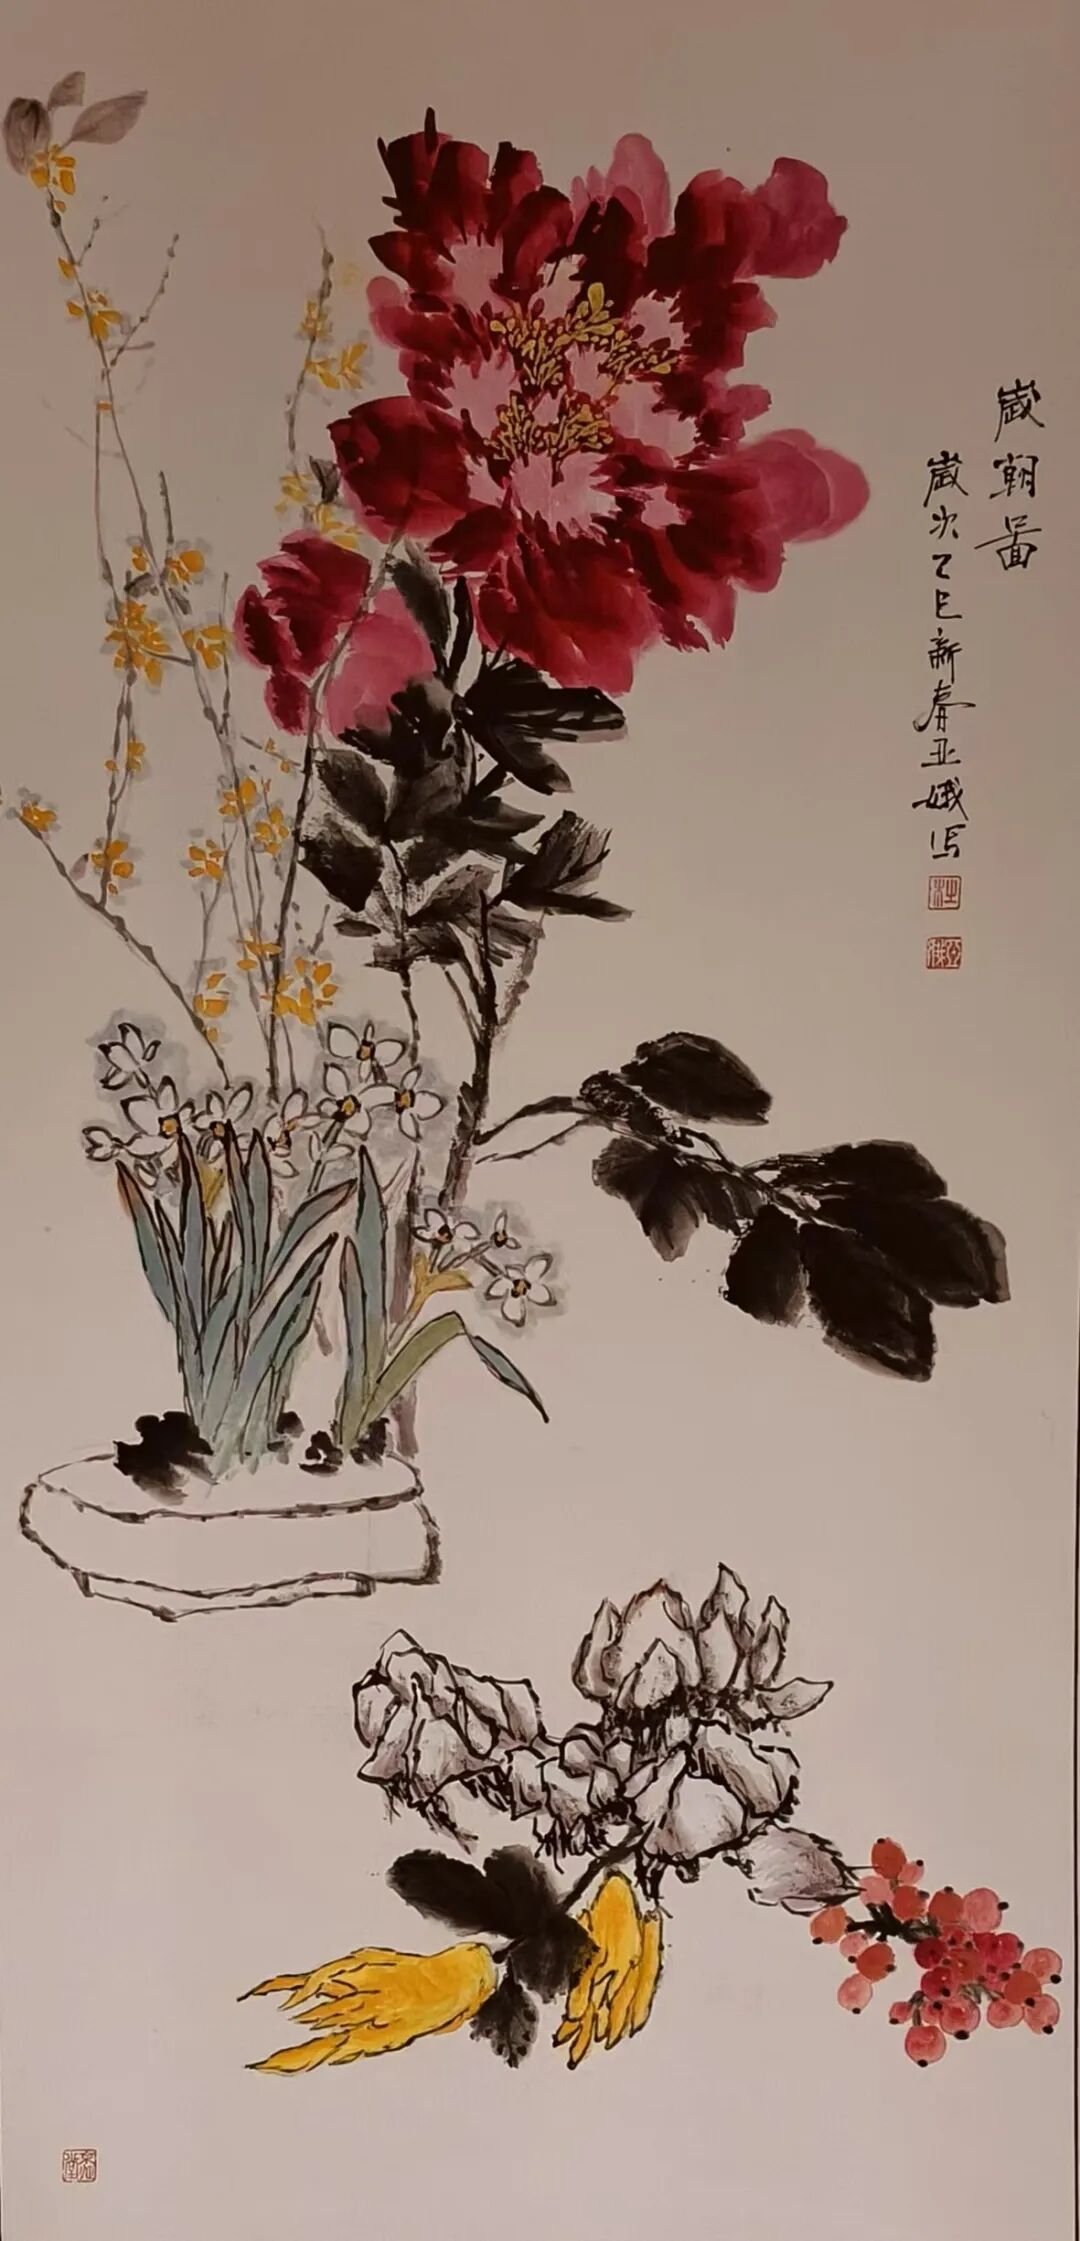 歲朝圖
歲次乙巳新春亚娥写
汪
亚娥